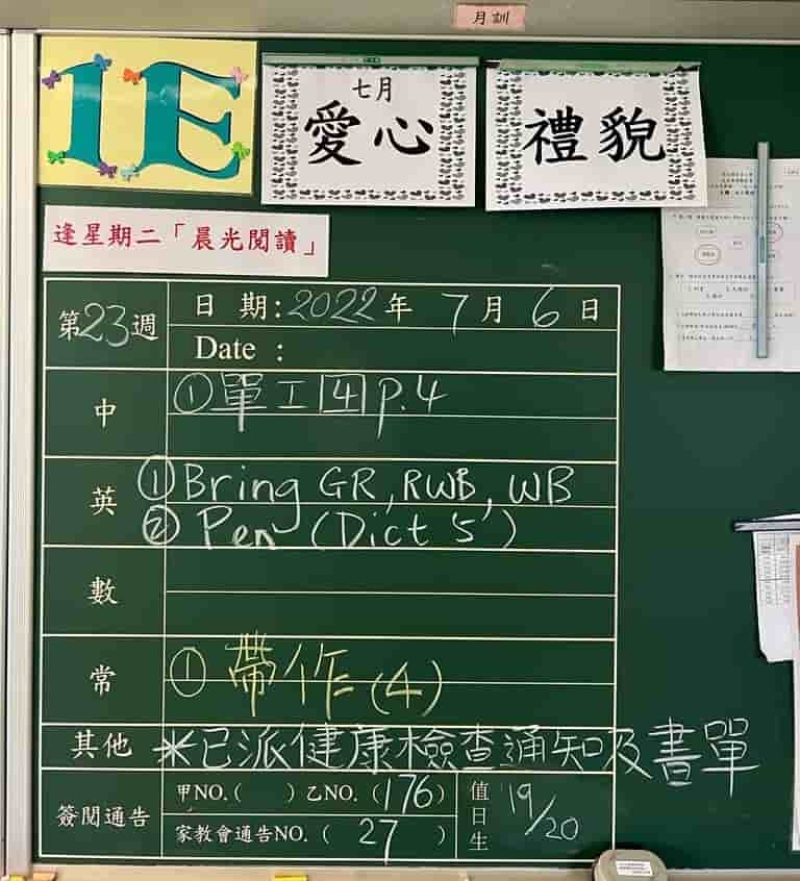 月訓
1E
七月
愛心
禮貌
逢星期二「晨光閱讀」
第23週
日 期:2022年 7月 6日
Date :
中
①單工 4 p.4
英
①Bring GR, RWB, WB
② Pen (Dict 5)
數
常
① 帶作(4)
其他
*已派健康檢查通知及書單
簽閱通告
甲NO.( ) 乙NO. (176)
家教會通告NO. ( 27 )
值日生
19/20